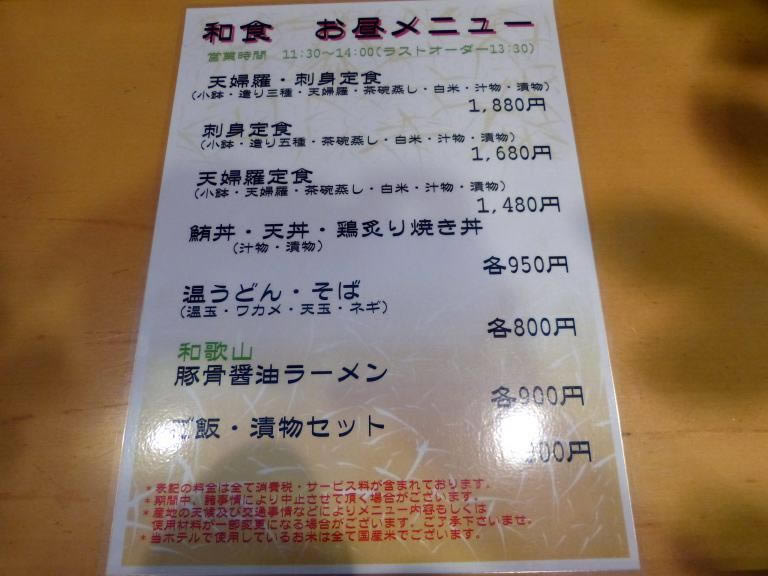 和食 お昼メニュー
営業時間 11:30～14:00(ラストオーダー13:30)
天婦羅・刺身定食
(小鉢・造り三種・天婦羅・茶碗蒸し・白米・汁物・漬物)
1,880円
刺身定食
(小鉢・造り五種・茶碗蒸し・白米・汁物・漬物)
1,680円
天婦羅定食
(小鉢・天婦羅・茶碗蒸し・白米・汁物・漬物)
1,480円
鮪丼・天丼・鶏炙り焼き丼
(汁物・漬物)
各950円
温うどん・そば
(温玉・ワカメ・天玉・ネギ)
各800円
和歌山
豚骨醤油ラーメン
各900円
ご飯・漬物セット
00円
*表記の料金は全て消費税・サービス料が含まれております。
*期間中、諸事情により中止させて頂く場合がございます。
*産地の天候及び交通事情などによりメニュー内容もしくは
使用材料が一部変更になる場合がございます。ご了承下さいませ。
*当ホテルで使用しているお米は全て国産米でございます。